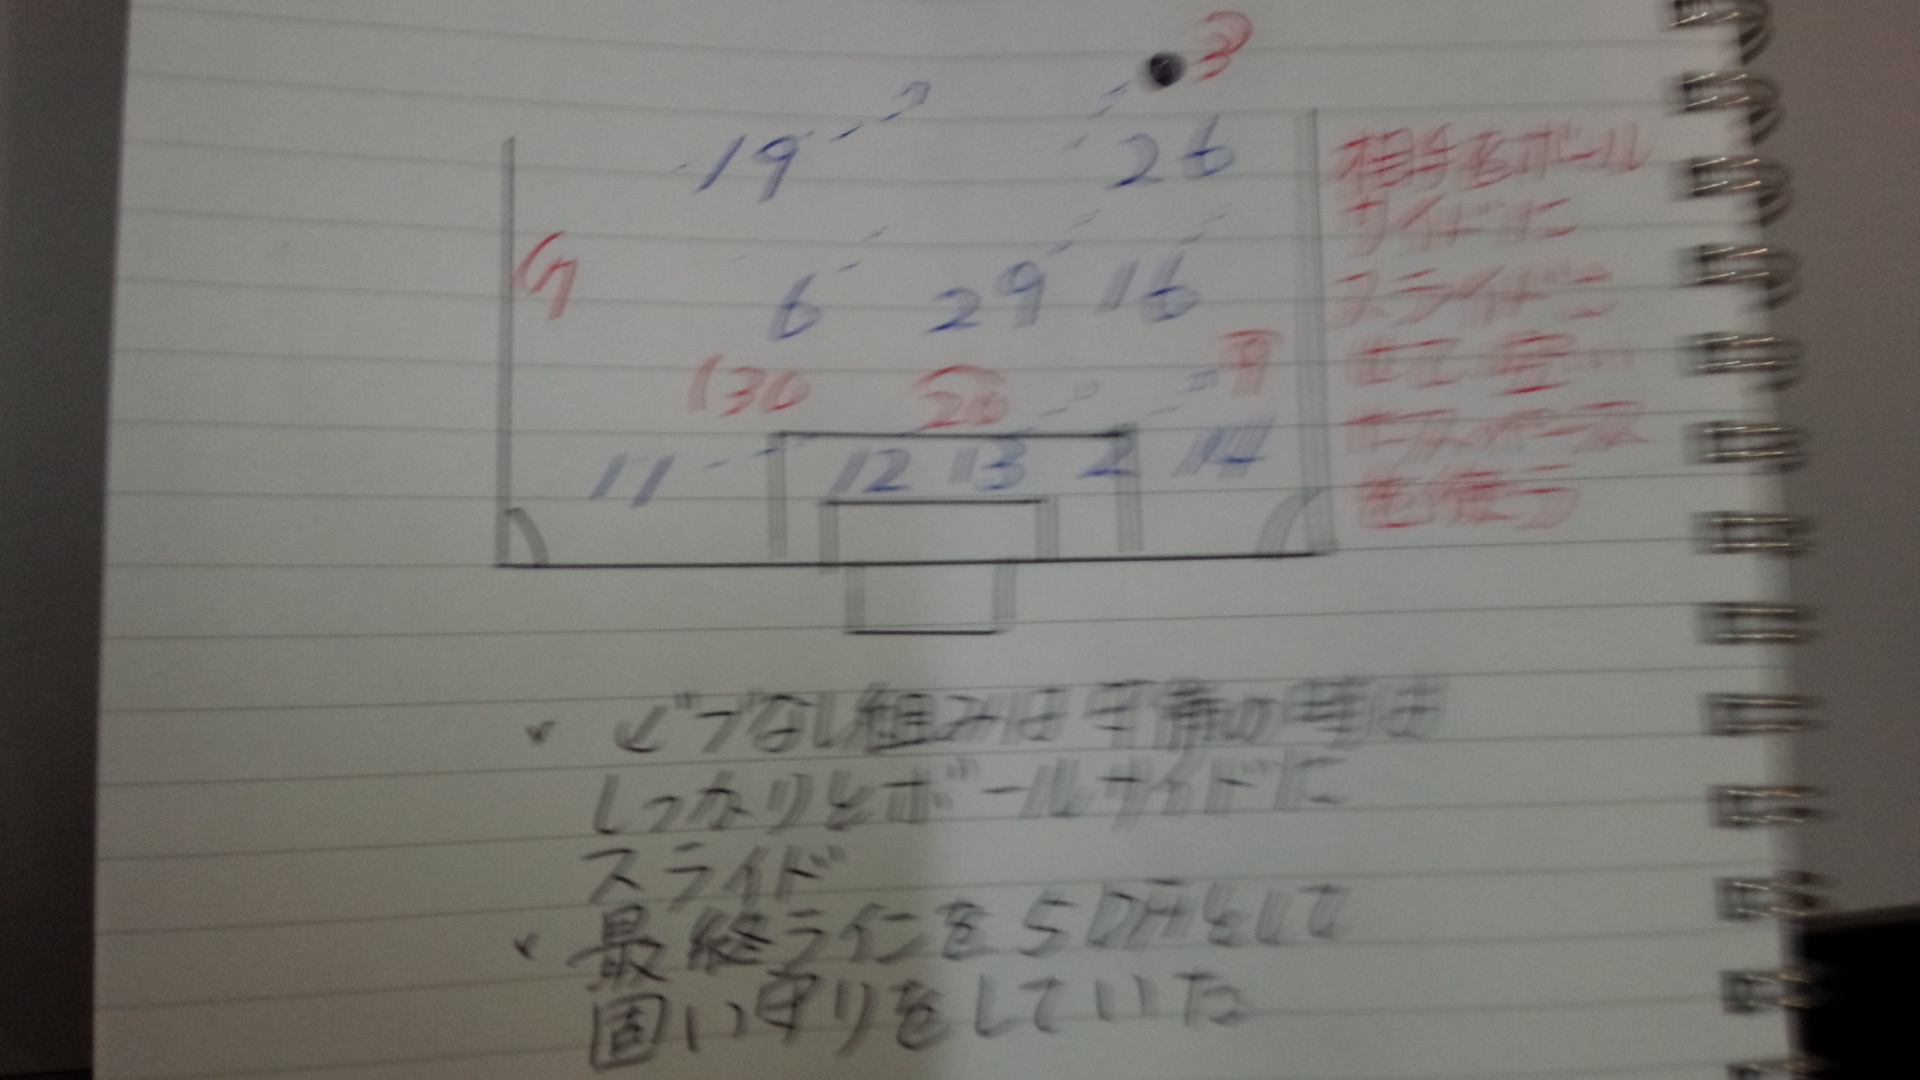 3
19 26
相手をボール
サイドに
7
6 29 16
スライドさ
せて空い
30 20 9
たスペース
11 12 13 2 14
を使う
・ビブなし組みは守備の時は
しっかりとボールサイドに
スライド
・最終ラインを5DFをして
固い守りをしていた